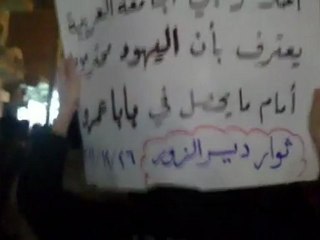 الجامعة العربية
يعترف بأن اليهود
أمام ما يحصل في بابا عمرو
ثوار ديــر الزور